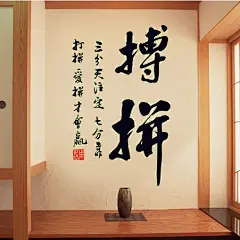 搏拼
三分天注定 七分靠
打拼 爱拼才會贏